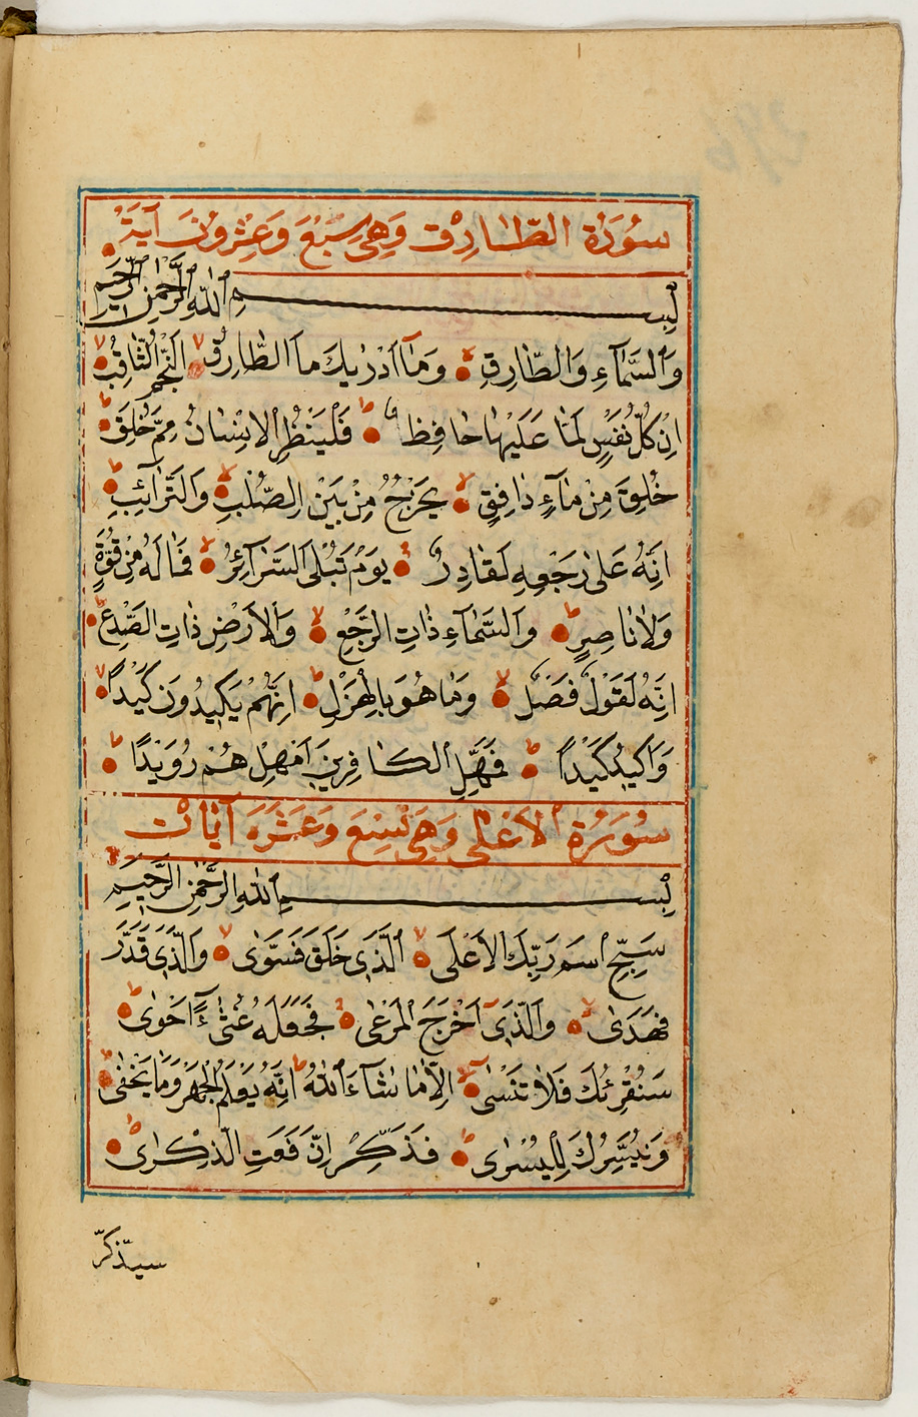 سُورَةُ الطَّارِقِ وَهِيَ سَبْعَ وَعِشْرُونَ آيَةً
بِسْمِ اللّٰهِ الرَّحْمٰنِ الرَّحِيمِ
وَالسَّمَآءِ وَالطَّارِقِ وَمَآ اَدْرٰيكَ مَا الطَّارِقُ النَّجْمُ الثَّاقِبُ
اِنْ كُلُّ نَفْسٍ لَمَّا عَلَيْهَا حَافِظٌ فَلْيَنْظُرِ الْاِنْسَانُ مِمَّ خُلِقَ
خُلِقَ مِنْ مَآءٍ دَافِقٍ يَخْرُجُ مِنْ بَيْنِ الصُّلْبِ وَالتَّرَآئِبِ
اِنَّهُ عَلٰى رَجْعِهِ لَقَادِرٌ يَوْمَ تُبْلَى السَّرَآئِرُ فَمَا لَهُ مِنْ قُوَّةٍ
وَلَا نَاصِرٍ وَالسَّمَآءِ ذَاتِ الرَّجْعِ وَالْاَرْضِ ذَاتِ الصَّدْعِ
اِنَّهُ لَقَوْلٌ فَصْلٌ وَمَا هُوَ بِالْهَزْلِ اِنَّهُمْ يَكِيدُونَ كَيْدًا
وَاَكِيدُ كَيْدًا فَمَهِّلِ الْكَافِرِينَ اَمْهِلْهُمْ رُوَيْدًا
سُورَةُ الْاَعْلٰى وَهِيَ تِسْعَ وَعَشَرَةَ آيَاتٍ
بِسْمِ اللّٰهِ الرَّحْمٰنِ الرَّحِيمِ
سَبِّحِ اسْمَ رَبِّكَ الْاَعْلَى الَّذِى خَلَقَ فَسَوّٰى وَالَّذِى قَدَّرَ
فَهَدٰى وَالَّذِىٓ اَخْرَجَ الْمَرْعٰى فَجَعَلَهُ غُثَآءً اَحْوٰى
سَنُقْرِئُكَ فَلَا تَنْسٰىٓ اِلَّا مَا شَآءَ اللّٰهُ اِنَّهُ يَعْلَمُ الْجَهْرَ وَمَا يَخْفٰى
وَنُيَسِّرُكَ لِلْيُسْرٰى فَذَكِّرْ اِنْ نَفَعَتِ الذِّكْرٰى
سيذكّر